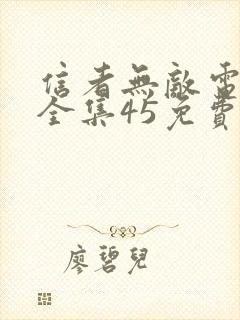 信者無敵電
全集45免費
廖碧兒